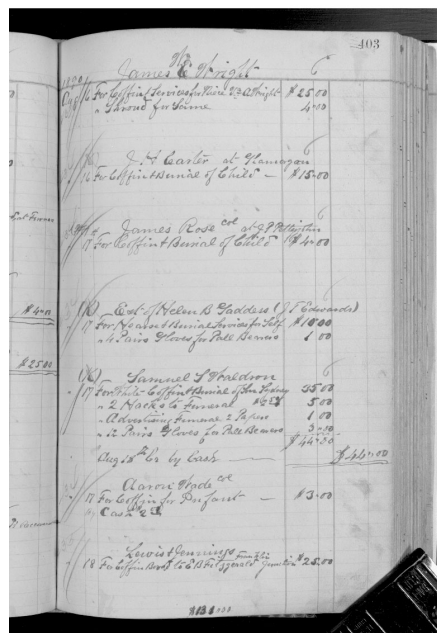 403
James Wright
1890
Aug 16 For Coffin & Services for Niece Wright $25.00
" Shroud for Same 4.00
J H Carter at
16 For Coffin & Burial of Child — $15.00
James Rose col at J P
17 For Coffin & Burial of Child $4.00
$4.00
Est of Helen B Gaddess (J T Edwards)
17 For Hearse & Burial Services for Self $10.00
" 4 Pairs Gloves for Pall Bearers 1.00
$25.00
Samuel S Waldron
17 For White Coffin & Burial of 35.00
" 2 Hacks to Funeral 5.00
" Advertising Funeral 2 Papers 1.00
" 12 Pairs Gloves for Pall Bearers 3.50
$44.50
Aug 18th Cr by Cash — $44.00
Aaron Wade col
17 For Coffin for Infant — $3.00
Cash
Lewis Jennings
18 For Coffin to E B Fitzgerald Franklin Junction $25.00